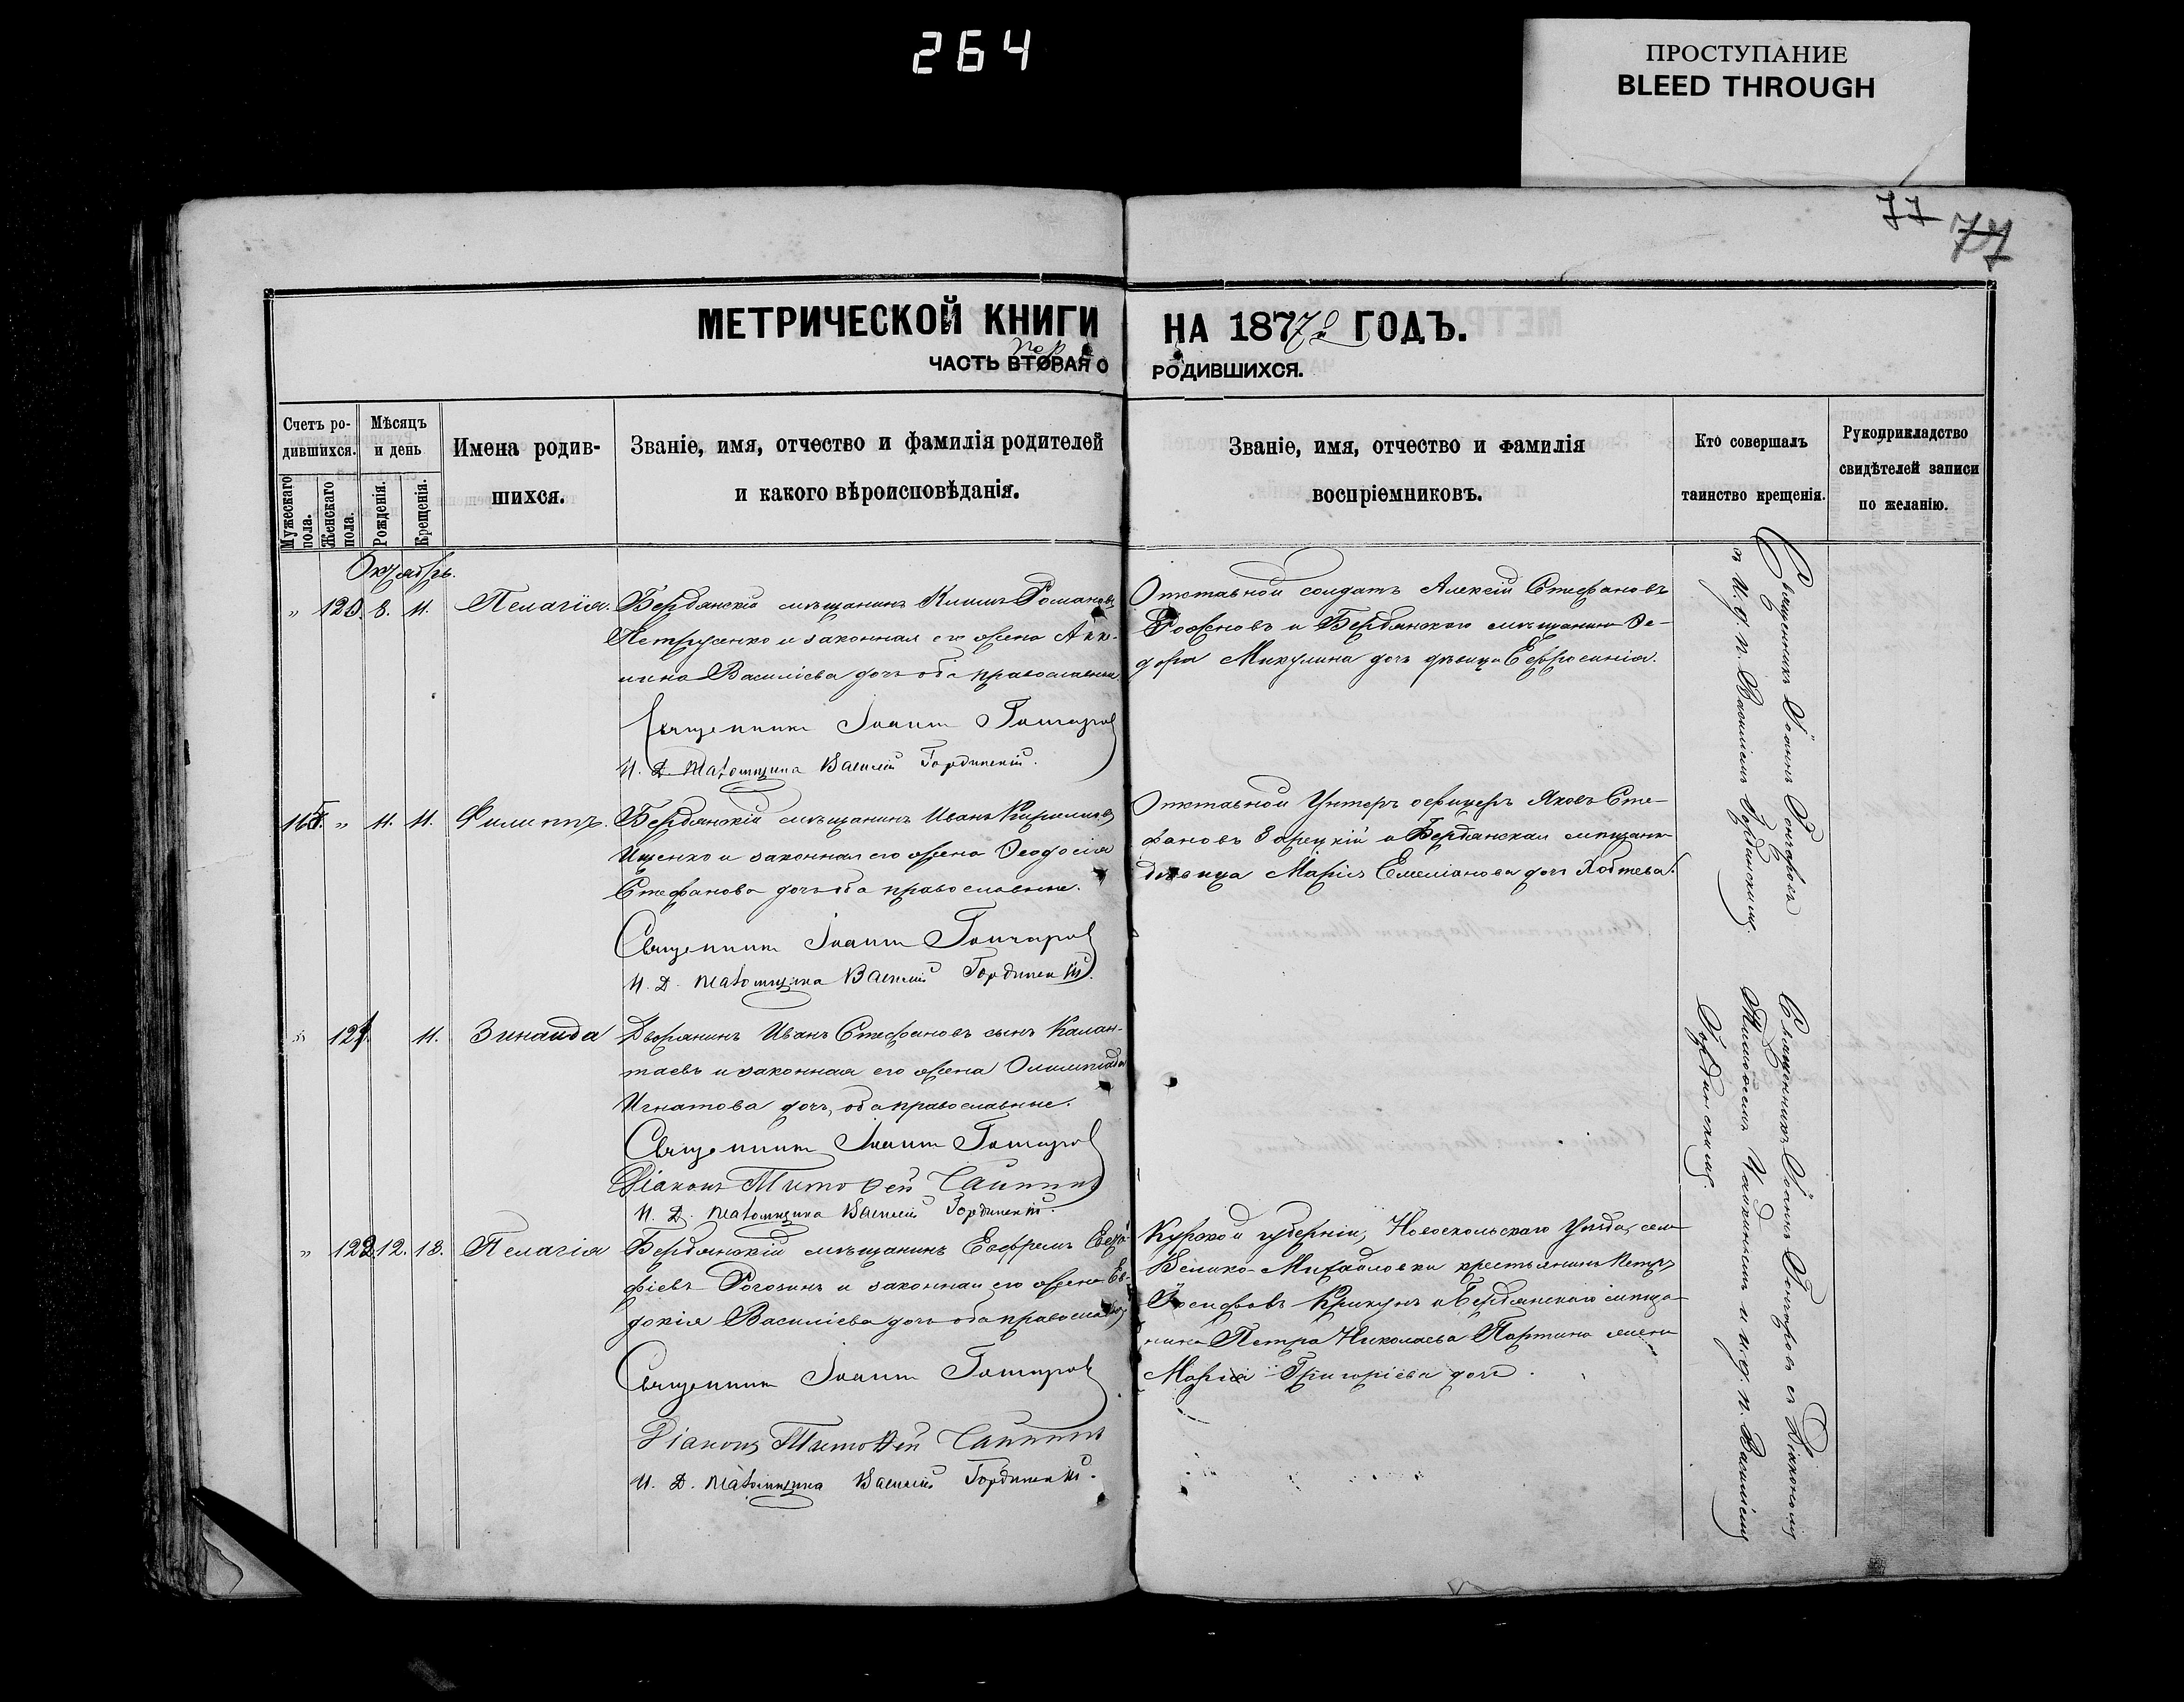 264
ПРОСТУПАНИЕ
BLEED THROUGH
77
77
МЕТРИЧЕСКОЙ КНИГИ НА 1877 ГОДЪ.
ЧАСТЬ ВТОРАЯ О РОДИВШИХСЯ.
Счетъ ро-
дившихся.
Мужескаго пола.
Женскаго пола.
Мѣсяцъ
и день
Рожденія.
Крещенія.
Имена родив-
шихся.
Званіе, имя, отчество и фамилія родителей
и какого вѣроисповѣданія.
Званіе, имя, отчество и фамилія
воспріемниковъ.
Кто совершалъ
таинство крещенія.
Рукоприкладство
свидѣтелей записи
по желанію.
Октябрь.
" 120. 8. 11. Пелагія.
Бердянскій мѣщанинъ Климъ Романовъ
Петрущенко и законная его жена Аки-
лина Василіева дочь оба православные
Священникъ Іоаннъ Гончаровъ
И. Д. Василій Гординскій.
Отставной солдатъ Алексій Стефановъ
Роженовъ и Бердянскаго мѣщанина Ѳе-
дора Микулина дочь дѣвица Евфросинія.
Священникъ Іоаннъ Гончаровъ
съ и. д. п. Василіемъ Гординскимъ.
" 11. 11. Филиппъ.
Бердянскій мѣщанинъ Иванъ Кирилловъ
Ищенко и законная его жена Ѳеодосія
Стефанова дочь оба православные.
Священникъ Іоаннъ Гончаровъ
И. Д. Василій Гординскій.
Отставной Унтеръ офицеръ Яковъ Сте-
фановъ Зарецкій и Бердянская мѣщанка
дѣвица Марія Емеліанова дочь
" 121. 11. Зинаида
Дворянинъ Иванъ Стефановъ сынъ Калан-
таевъ и законная его жена Олимпіада
Игнатова дочь, оба православные.
Священникъ Іоаннъ Гончаровъ
Діаконъ Тимоѳей
И. Д. Василій Гординскій.
Священникъ Іоаннъ Гончаровъ съ Діакономъ
Тимоѳеемъ и и. д. п. Василіемъ
Гординскимъ.
" 122. 12. 18. Пелагія
Бердянскій мѣщанинъ Евфремъ
Рогозинъ и законная его жена Ев-
докія Василіева дочь оба православные
Священникъ Іоаннъ Гончаровъ
Діаконъ Тимоѳей
И. Д. Василій Гординскій.
Курской губерніи, Новоскольскаго Уѣзда, села
Велико-Михайловки крестьянинъ Петръ
Іосифовъ Крикунъ и Бердянскаго мѣща-
нина Петра Николаева Партина жена
Марія Григоріева дочь.